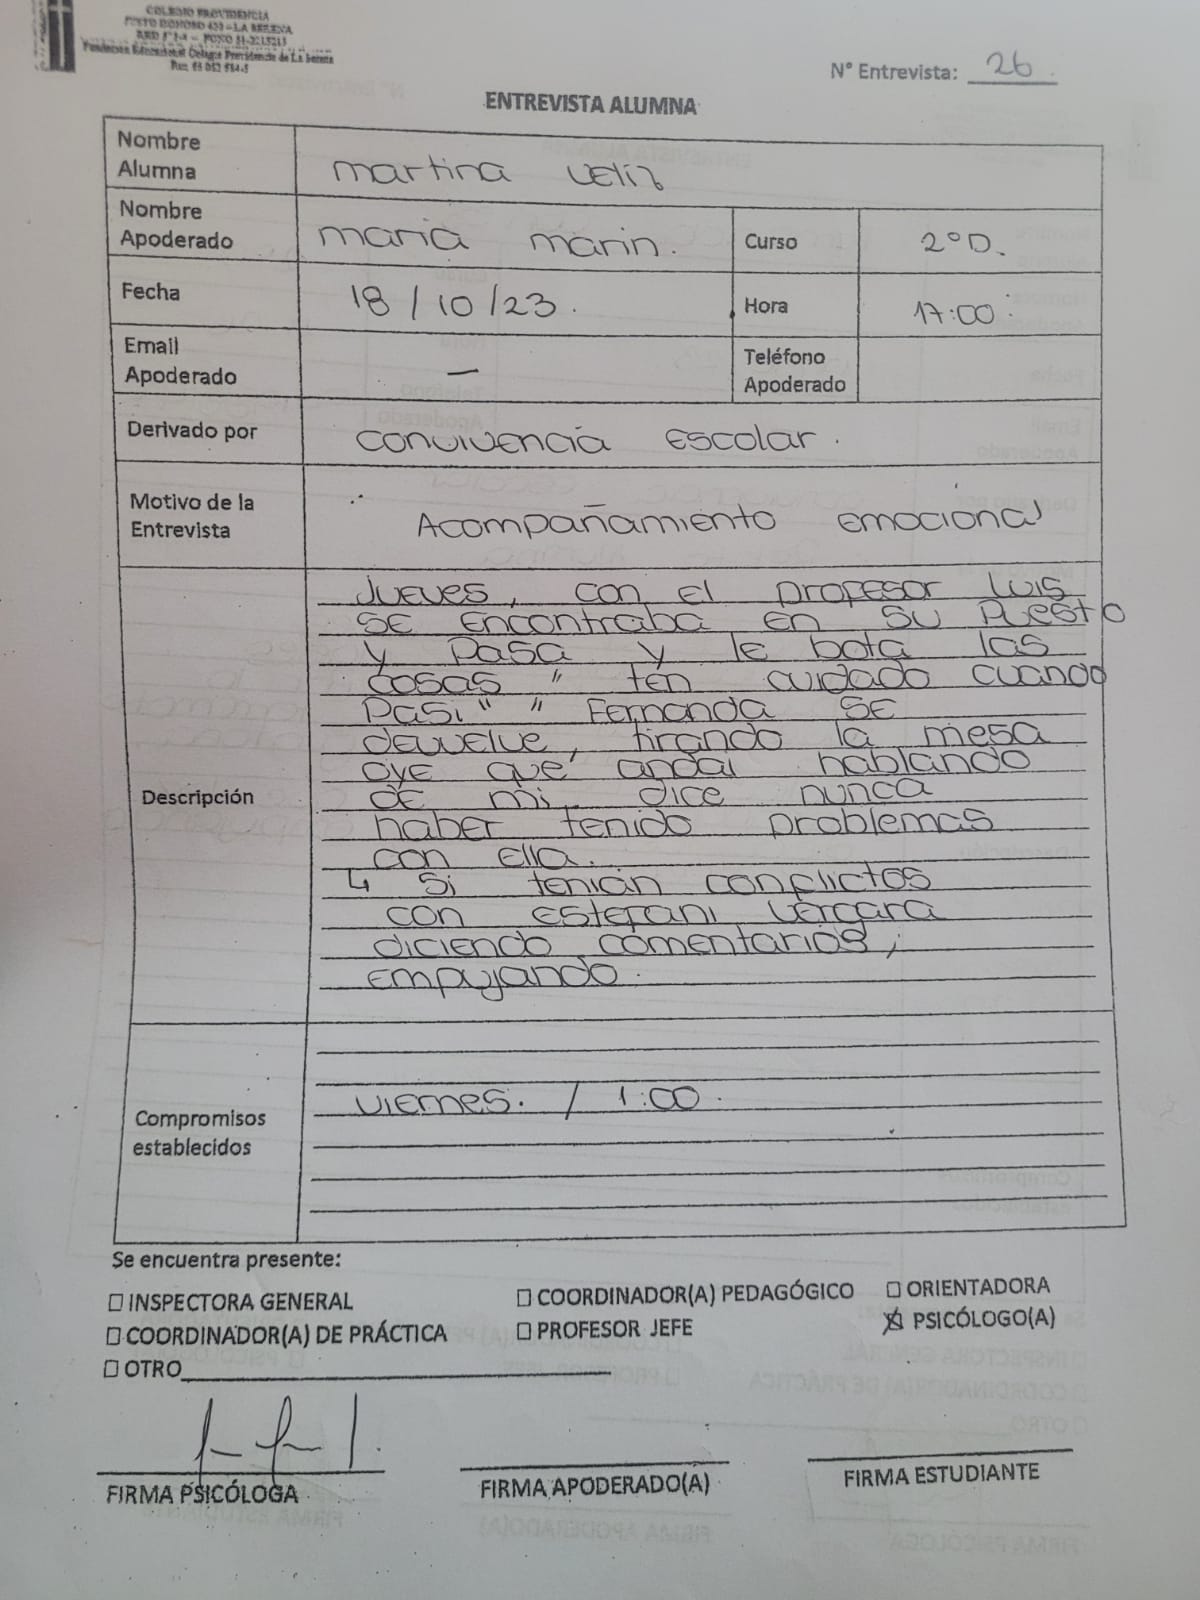 COLEGIO PROVIDENCIA
JUSTO DONOSO 420 – LA SERENA
Fundación Educacional Colegio Providencia de La Serena
N° Entrevista: 26
ENTREVISTA ALUMNA
Nombre Alumna martina veliz
Nombre Apoderado maria marin. Curso 2°D.
Fecha 18/10/23. Hora 17:00
Email Apoderado — Teléfono Apoderado
Derivado por convivencia Escolar.
Motivo de la Entrevista Acompañamiento emocional
Descripción
Jueves, con el profesor Luis
se encontraba en su puesto
y pasa y le bota las
cosas " ten cuidado cuando
pasi" " Fernanda se
devuelve, tirando la mesa
oye que andai hablando
de mi, dice nunca
haber tenido problemas
con ella.
↳ Si tenian conflictos
con Estefani Vergara
diciendo comentarios,
empujando.
Compromisos establecidos
viernes. / 1:00.
Se encuentra presente:
☐ INSPECTORA GENERAL ☐ COORDINADOR(A) PEDAGÓGICO ☐ ORIENTADORA
☐ COORDINADOR(A) DE PRÁCTICA ☐ PROFESOR JEFE ☒ PSICÓLOGO(A)
☐ OTRO
FIRMA PSICÓLOGA FIRMA APODERADO(A) FIRMA ESTUDIANTE